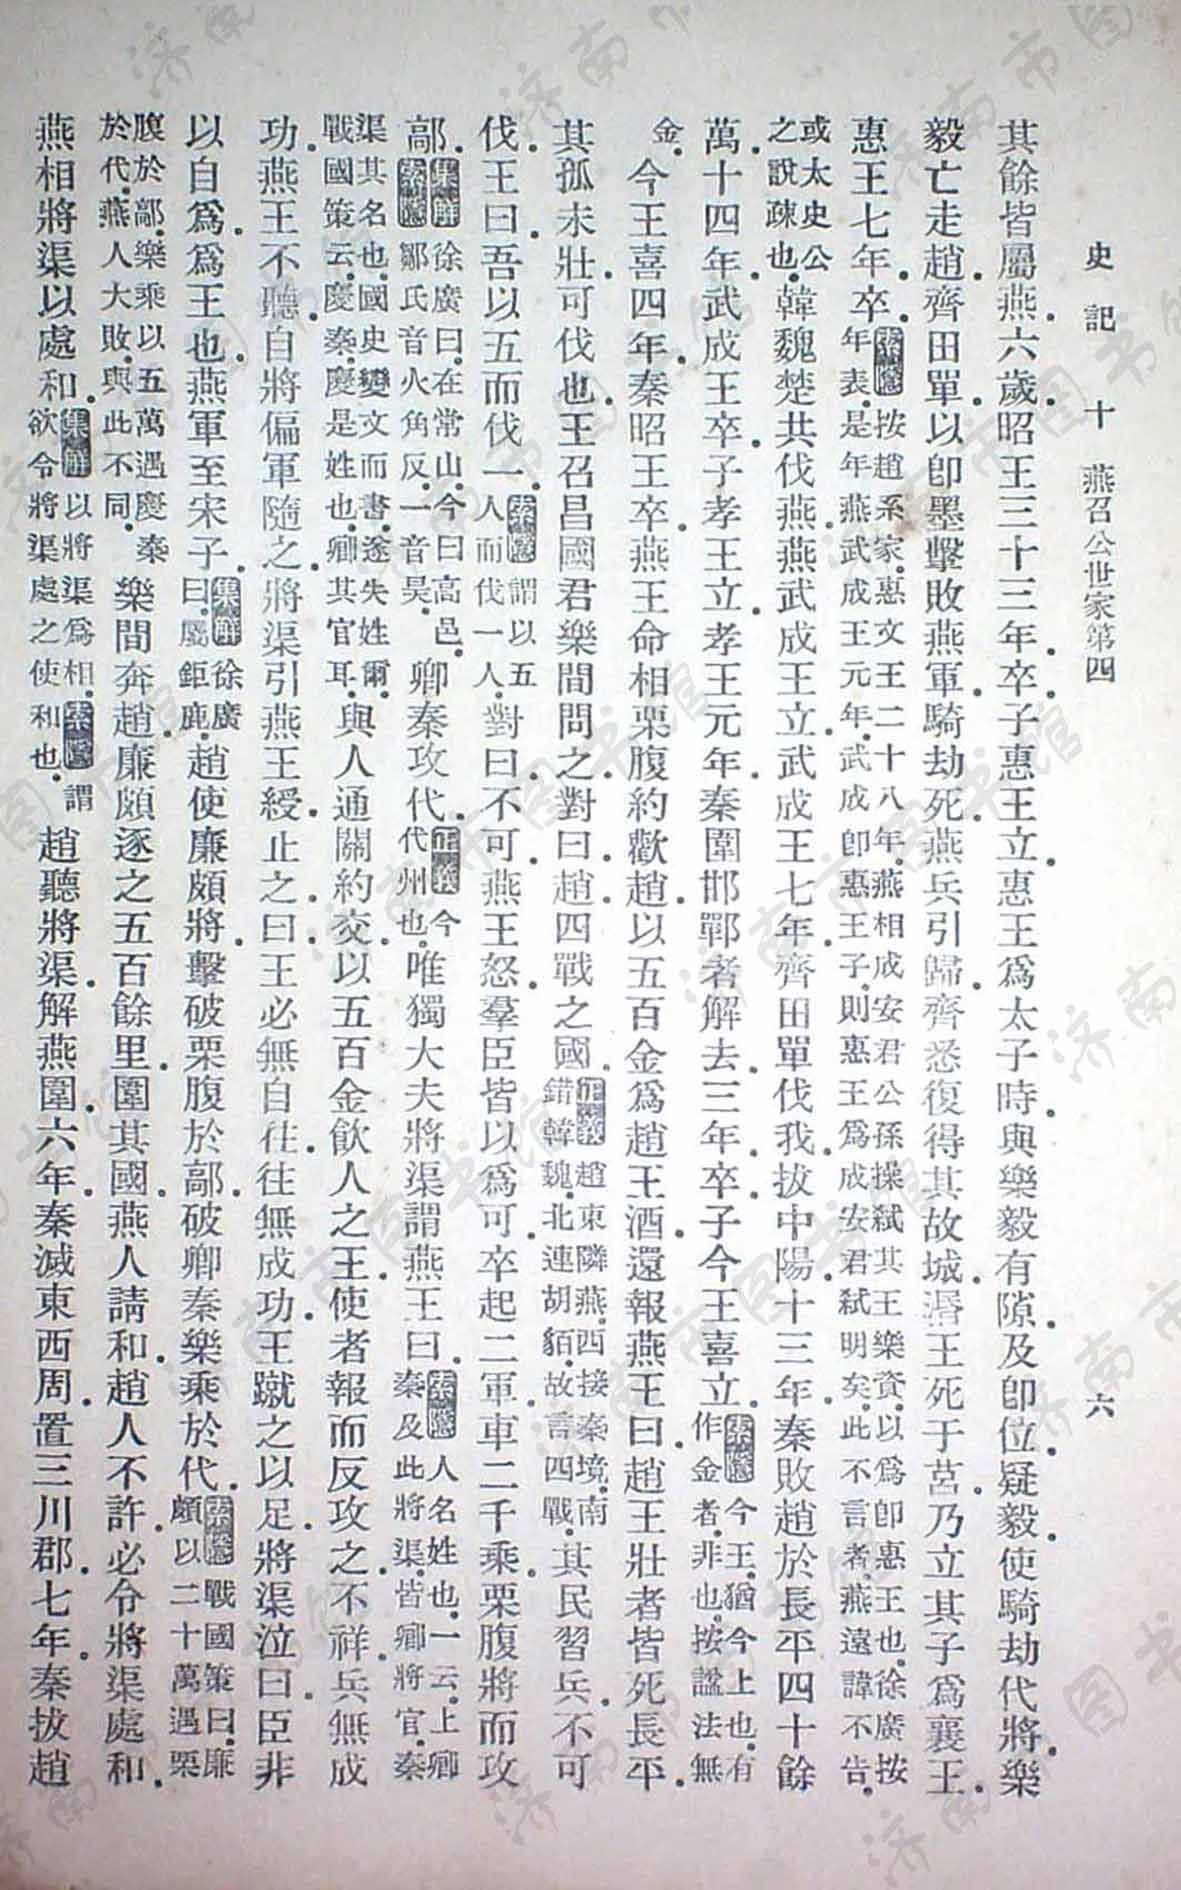 史記 十 燕召公世家第四 六
其餘皆屬燕.六歲.昭王三十三年.卒.子惠王立.惠王爲太子時.與樂毅有隙.及卽位.疑毅.使騎劫代將.樂
毅亡走趙.齊田單以卽墨擊敗燕軍.騎劫死.燕兵引歸.齊悉復得其故城.湣王死于莒.乃立其子爲襄王.
惠王七年.卒.索隱按趙系家.惠文王二十八年.燕相成安君公孫操弑其王.樂資以爲卽惠王也.徐廣按年表.是年燕武成王元年.武成卽惠王子.則惠王爲成安君弑明矣.此不言者.燕遠諱不告.
或太史公之說疎也.韓魏楚共伐燕.燕武成王立.武成王七年.齊田單伐我.拔中陽.十三年.秦敗趙於長平四十餘
萬.十四年.武成王卒.子孝王立.孝王元年.秦圍邯鄲者解去.三年.卒.子今王喜立.索隱今王.猶今上也.有作金者.非也.按諡法無
金.今王喜四年.秦昭王卒.燕王命相栗腹約歡趙.以五百金爲趙王酒.還報燕王曰.趙王壯者皆死長平.
其孤未壯.可伐也.王召昌國君樂間問之.對曰.趙四戰之國.正義趙東隣燕.西接秦境.南錯韓魏.北連胡貊.故言四戰.其民習兵.不可
伐.王曰.吾以五而伐一.索隱謂以五人而伐一人.對曰.不可.燕王怒.羣臣皆以爲可.卒起二軍.車二千乘.栗腹將而攻
鄗.集解徐廣曰.在常山.今曰高邑.索隱鄒氏音火角反.一音昊.卿秦攻代.正義今代州也.唯獨大夫將渠謂燕王曰.索隱人名姓也.一云.上卿秦及此將渠.皆卿將官.秦
渠其名也.國史變文而書.遂失姓爾.戰國策云.慶秦.慶是姓也.卿其官耳.與人通關約交.以五百金飲人之王.使者報而反攻之.不祥.兵無成
功.燕王不聽.自將偏軍隨之.將渠引燕王綬.止之.曰.王必無自往.往無成功.王蹴之以足.將渠泣曰.臣非
以自爲.爲王也.燕軍至宋子.集解徐廣曰.屬鉅鹿.趙使廉頗將.擊破栗腹於鄗.破卿秦樂乘於代.索隱戰國策曰.廉頗以二十萬遇栗
腹於鄗.樂乘以五萬遇慶秦於代.燕人大敗.與此不同.樂間奔趙.廉頗逐之五百餘里.圍其國.燕人請和.趙人不許.必令將渠處和.
燕相將渠以處和.集解以將渠爲相.索隱謂欲令將渠處之使和也.趙聽將渠.解燕圍.六年.秦滅東西周.置三川郡.七年.秦拔趙